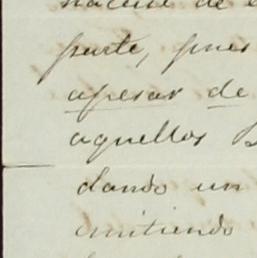 parte, pues
apesar de
aquellos
dando un
emitiendo